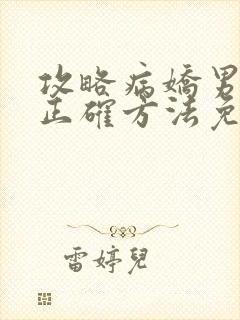 攻略病嬌男
正確方法免
雷婷兒